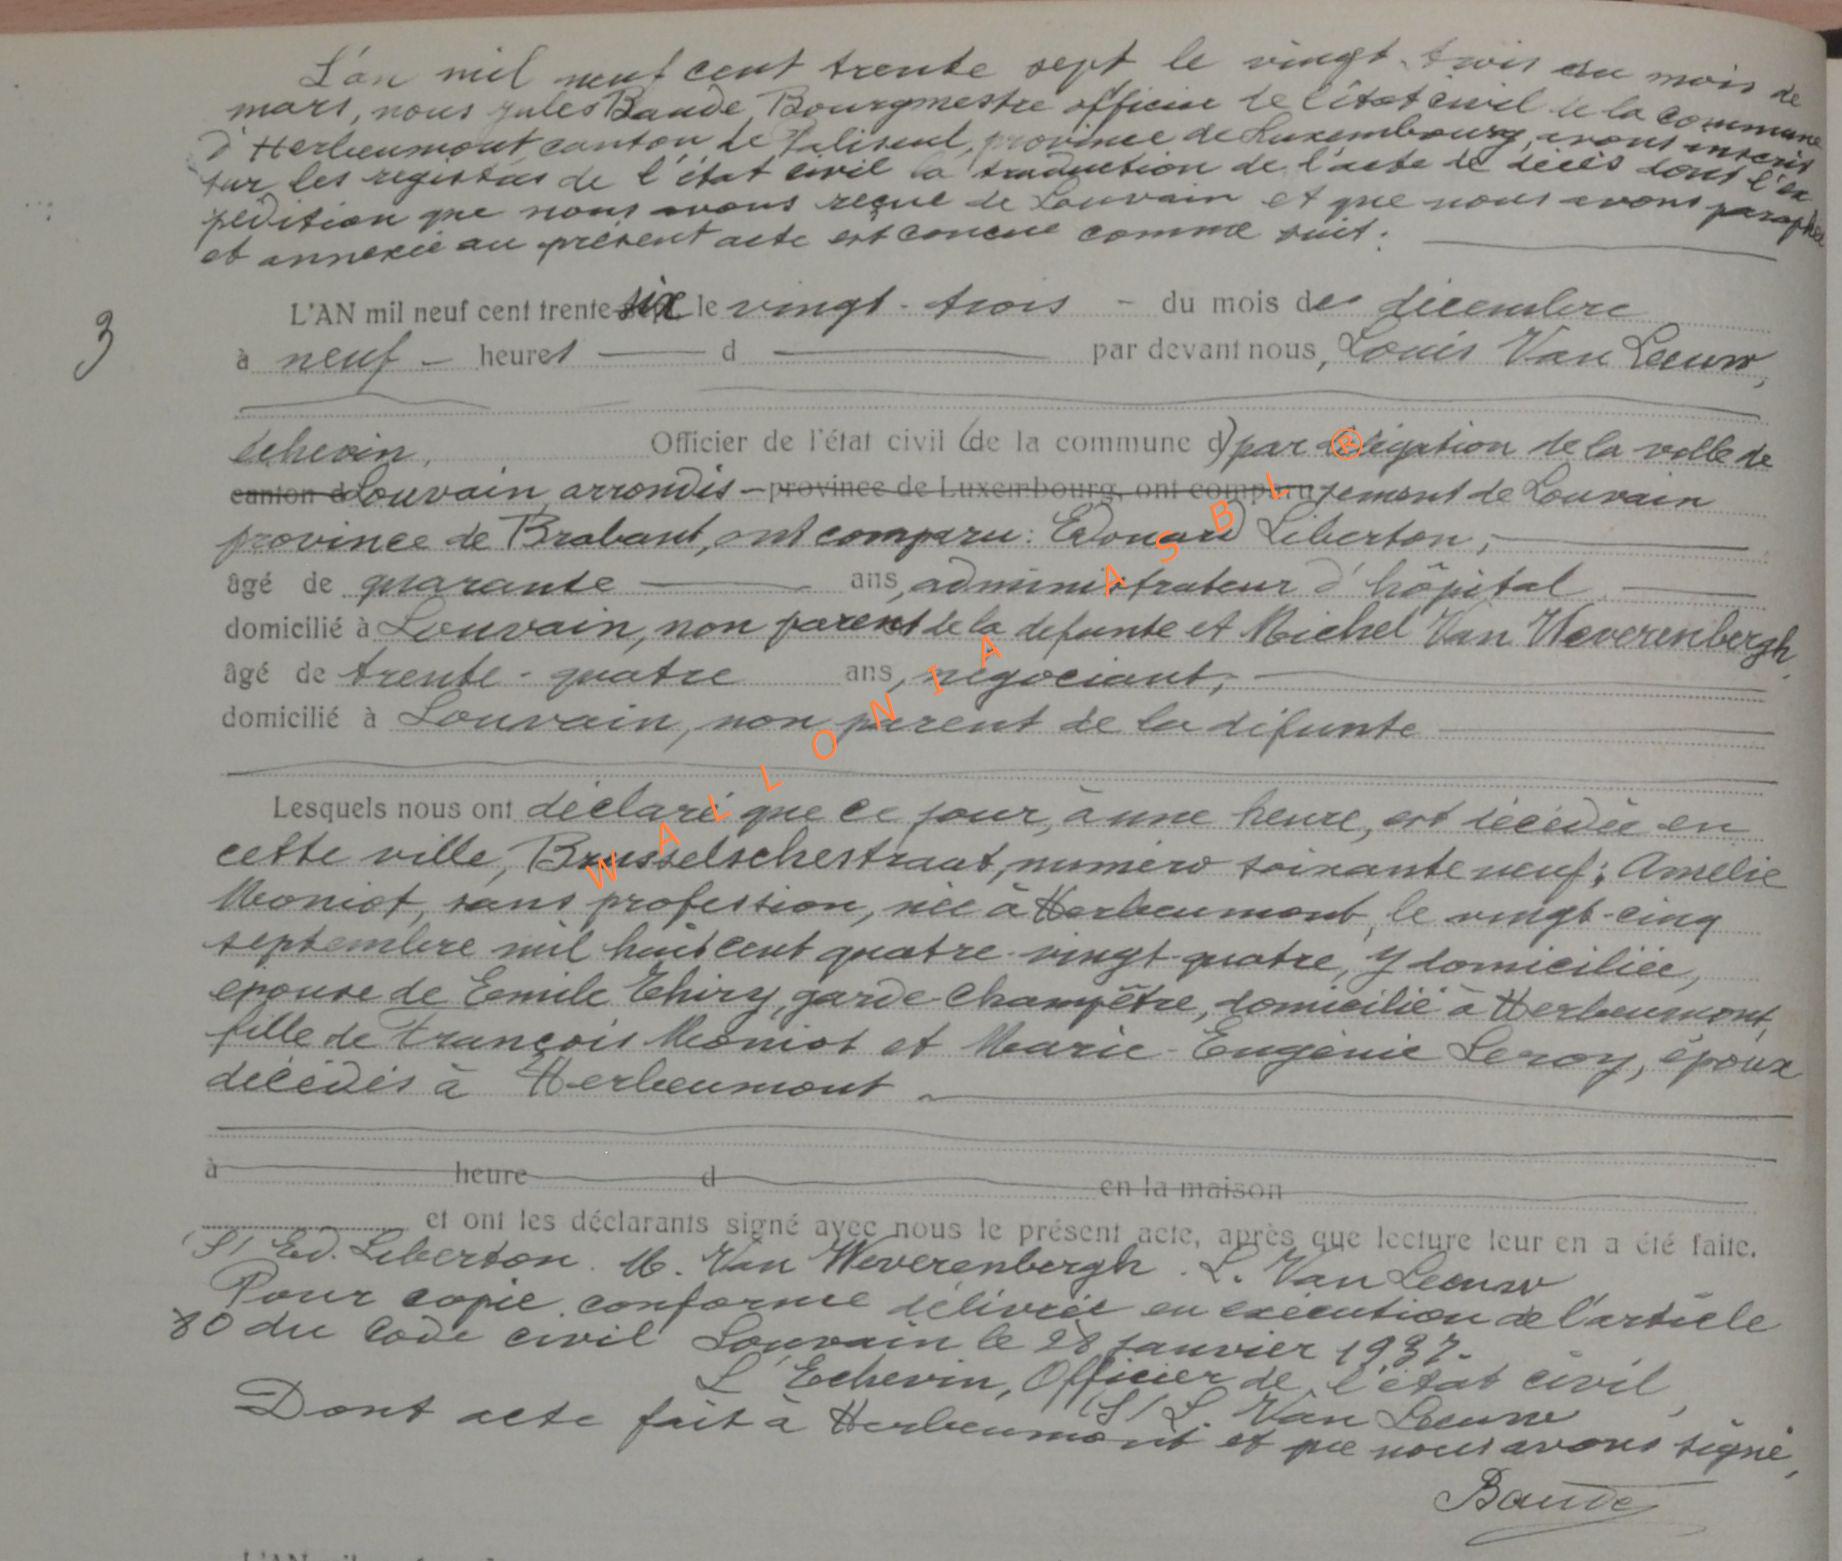 L'an mil neuf cent trente sept le vingt-trois du mois de
mars, nous Jules Baude, Bourgmestre officier de l'état civil de la commune
d'Herbeumont canton de Paliseul, province de Luxembourg, avons inscrit
sur les registres de l'état civil la traduction de l'acte de décès dont l'ex
pédition que nous avons reçue de Louvain et que nous avons paraphée
et annexée au présent acte est concue comme suit :
3
L'AN mil neuf cent trente six le vingt-trois - du mois de décembre
à neuf - heures d par devant nous, Louis Van Leeuw,
échevin, Officier de l'état civil (de la commune d) par délégation de la ville de
canton d Louvain, arrondis - province de Luxembourg, ont comparu sement de Louvain
province de Brabant, ont comparu : Edouard Liberton,
âgé de quarante ans, administrateur d'hôpital
domicilié à Louvain, non parent de la défunte et Michel Van Weverenbergh,
âgé de trente-quatre ans, négociant,
domicilié à Louvain, non parent de la défunte
Lesquels nous ont déclaré que ce jour, à une heure, est décédée en
cette ville, Brusselschestraat, numéro soixante neuf ; Amélie
Moniot, sans profession, née à Herbeumont, le vingt-cinq
septembre mil huit cent quatre-vingt-quatre, y domiciliée,
épouse de Emile Thiry, garde-Champêtre, domicilié à Herbeumont,
fille de François Moniot et Marie-Eugénie Leroy, époux
décédés à Herbeumont
à heure d en la maison
et ont les déclarants signé avec nous le présent acte, après que lecture leur en a été faite.
(S) Ed. Liberton. M. Van Weverenbergh. L. Van Leeuw
Pour copie conforme délivrée en exécution de l'article
80 du Code civil Louvain le 28 janvier 1937.
L'Echevin, Officier de l'état civil,
(S) L. Van Leeuw
Dont acte fait à Herbeumont et que nous avons signé,
Baude
WALLONIA ASBL ®